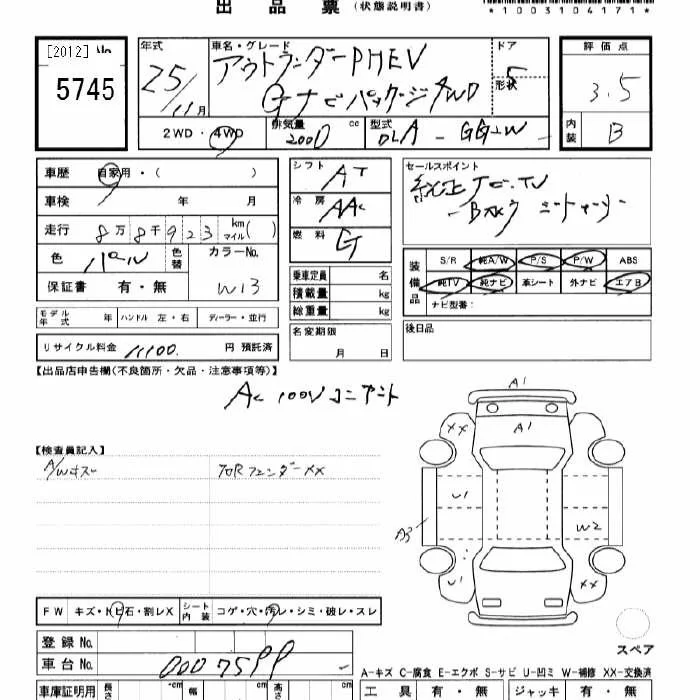 出品票 (状態説明書)
*1003104171*
[2012] No.
5745
年式
25/11月
車名・グレード
アウトランダーPHEV
Gナビパッケージ 4WD
ドア
5
形状
評価点
3.5
2WD・4WD
排気量 2000 cc
型式 DLA-GG2W
内装
B
車歴 自家用・( )
車検 年 月
走行 8万8千923 km マイル( )
色 パール 色替
カラーNo. W13
保証書 有・無
シフト AT
冷房 AAC
燃料 G
セールスポイント
純正ナビ・TV
装備品
S/R 純A/W P/S P/W ABS
純TV 純ナビ 革シート 外ナビ エアB
ナビ型番:
乗車定員 名
積載量 kg
総重量 kg
モデル年式 年 ハンドル 左・右 ディーラー・並行
名変期限
月 日
後日品
リサイクル料金 11100 円 預託済
【出品店申告欄(不良箇所・欠品・注意事項等)】
AC 100Vコンセント
【検査員記入】
A/Wキズ
フロRフェンダーXX
A1
A1
XX
U1
A3
W2
U1
XX
FW キズ・トビ石・割レX
シート内装 コゲ・穴・汚レ・シミ・破レ・スレ
スペア
登録No.
車台No.
A-キズ C-腐食 E-エクボ S-サビ U-凹ミ W-補修 XX-交換済
車庫証明用 長さ cm 幅 cm 高さ cm
工具 有・無 ジャッキ 有・無